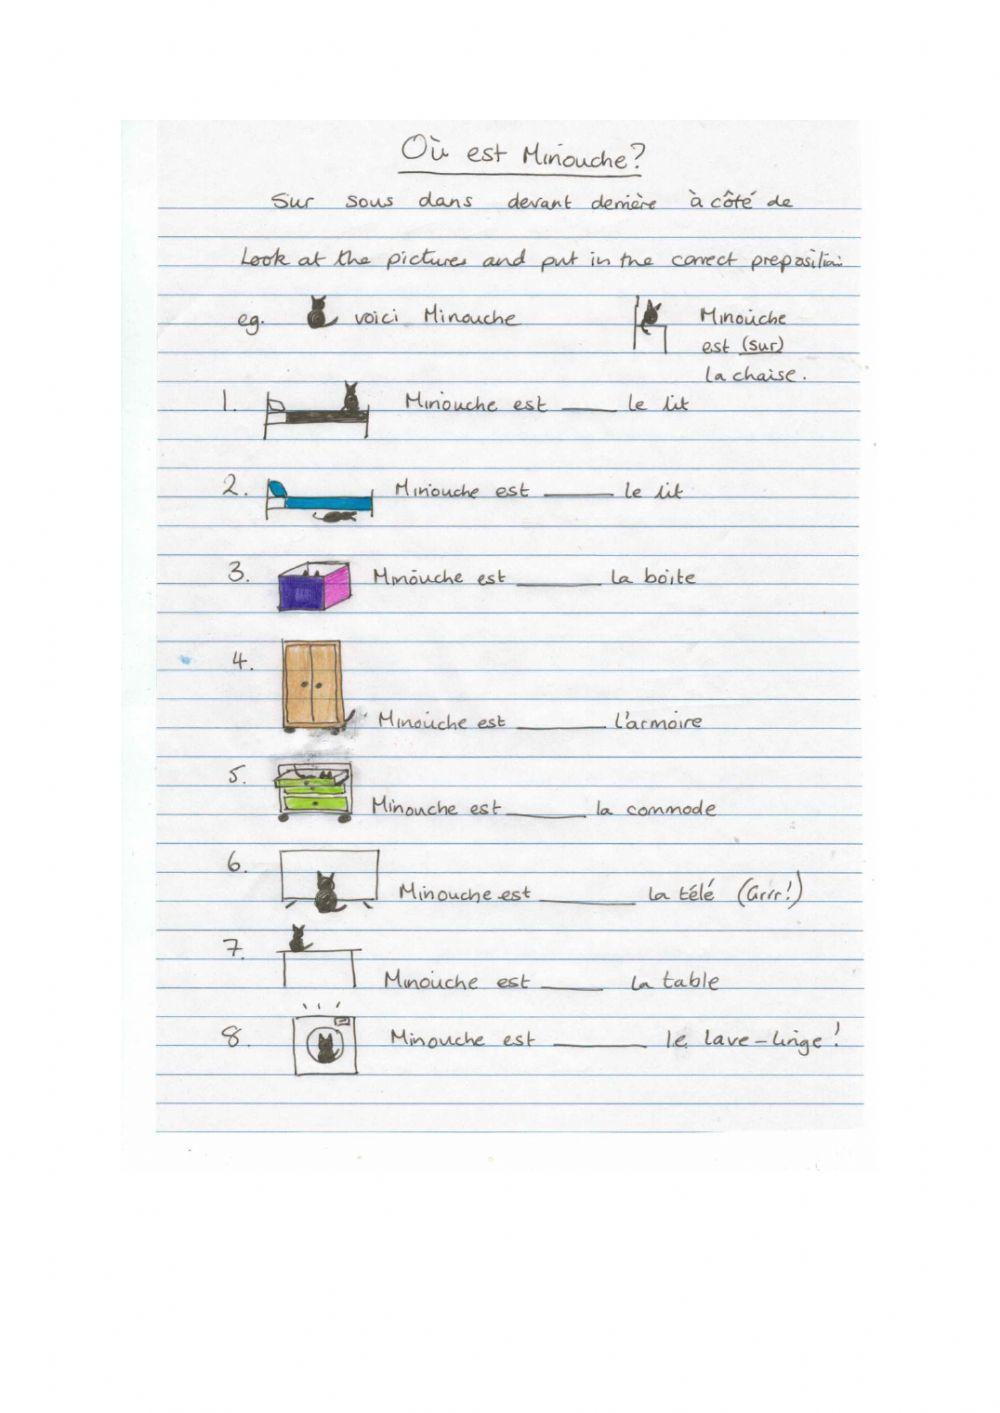 Où est Minouche?
Sur sous dans devant derrière à côté de
Look at the pictures and put in the correct preposition.
eg. voici Minouche Minouche
est (sur)
la chaise.
1. Minouche est ____ le lit
2. Minouche est ____ le lit
3. Minouche est ____ la boite
4.
Minouche est ____ l'armoire
5.
Minouche est ____ la commode
6.
Minouche est ____ la télé (Grrr!)
7.
Minouche est ____ la table
8. Minouche est ____ le lave-linge!